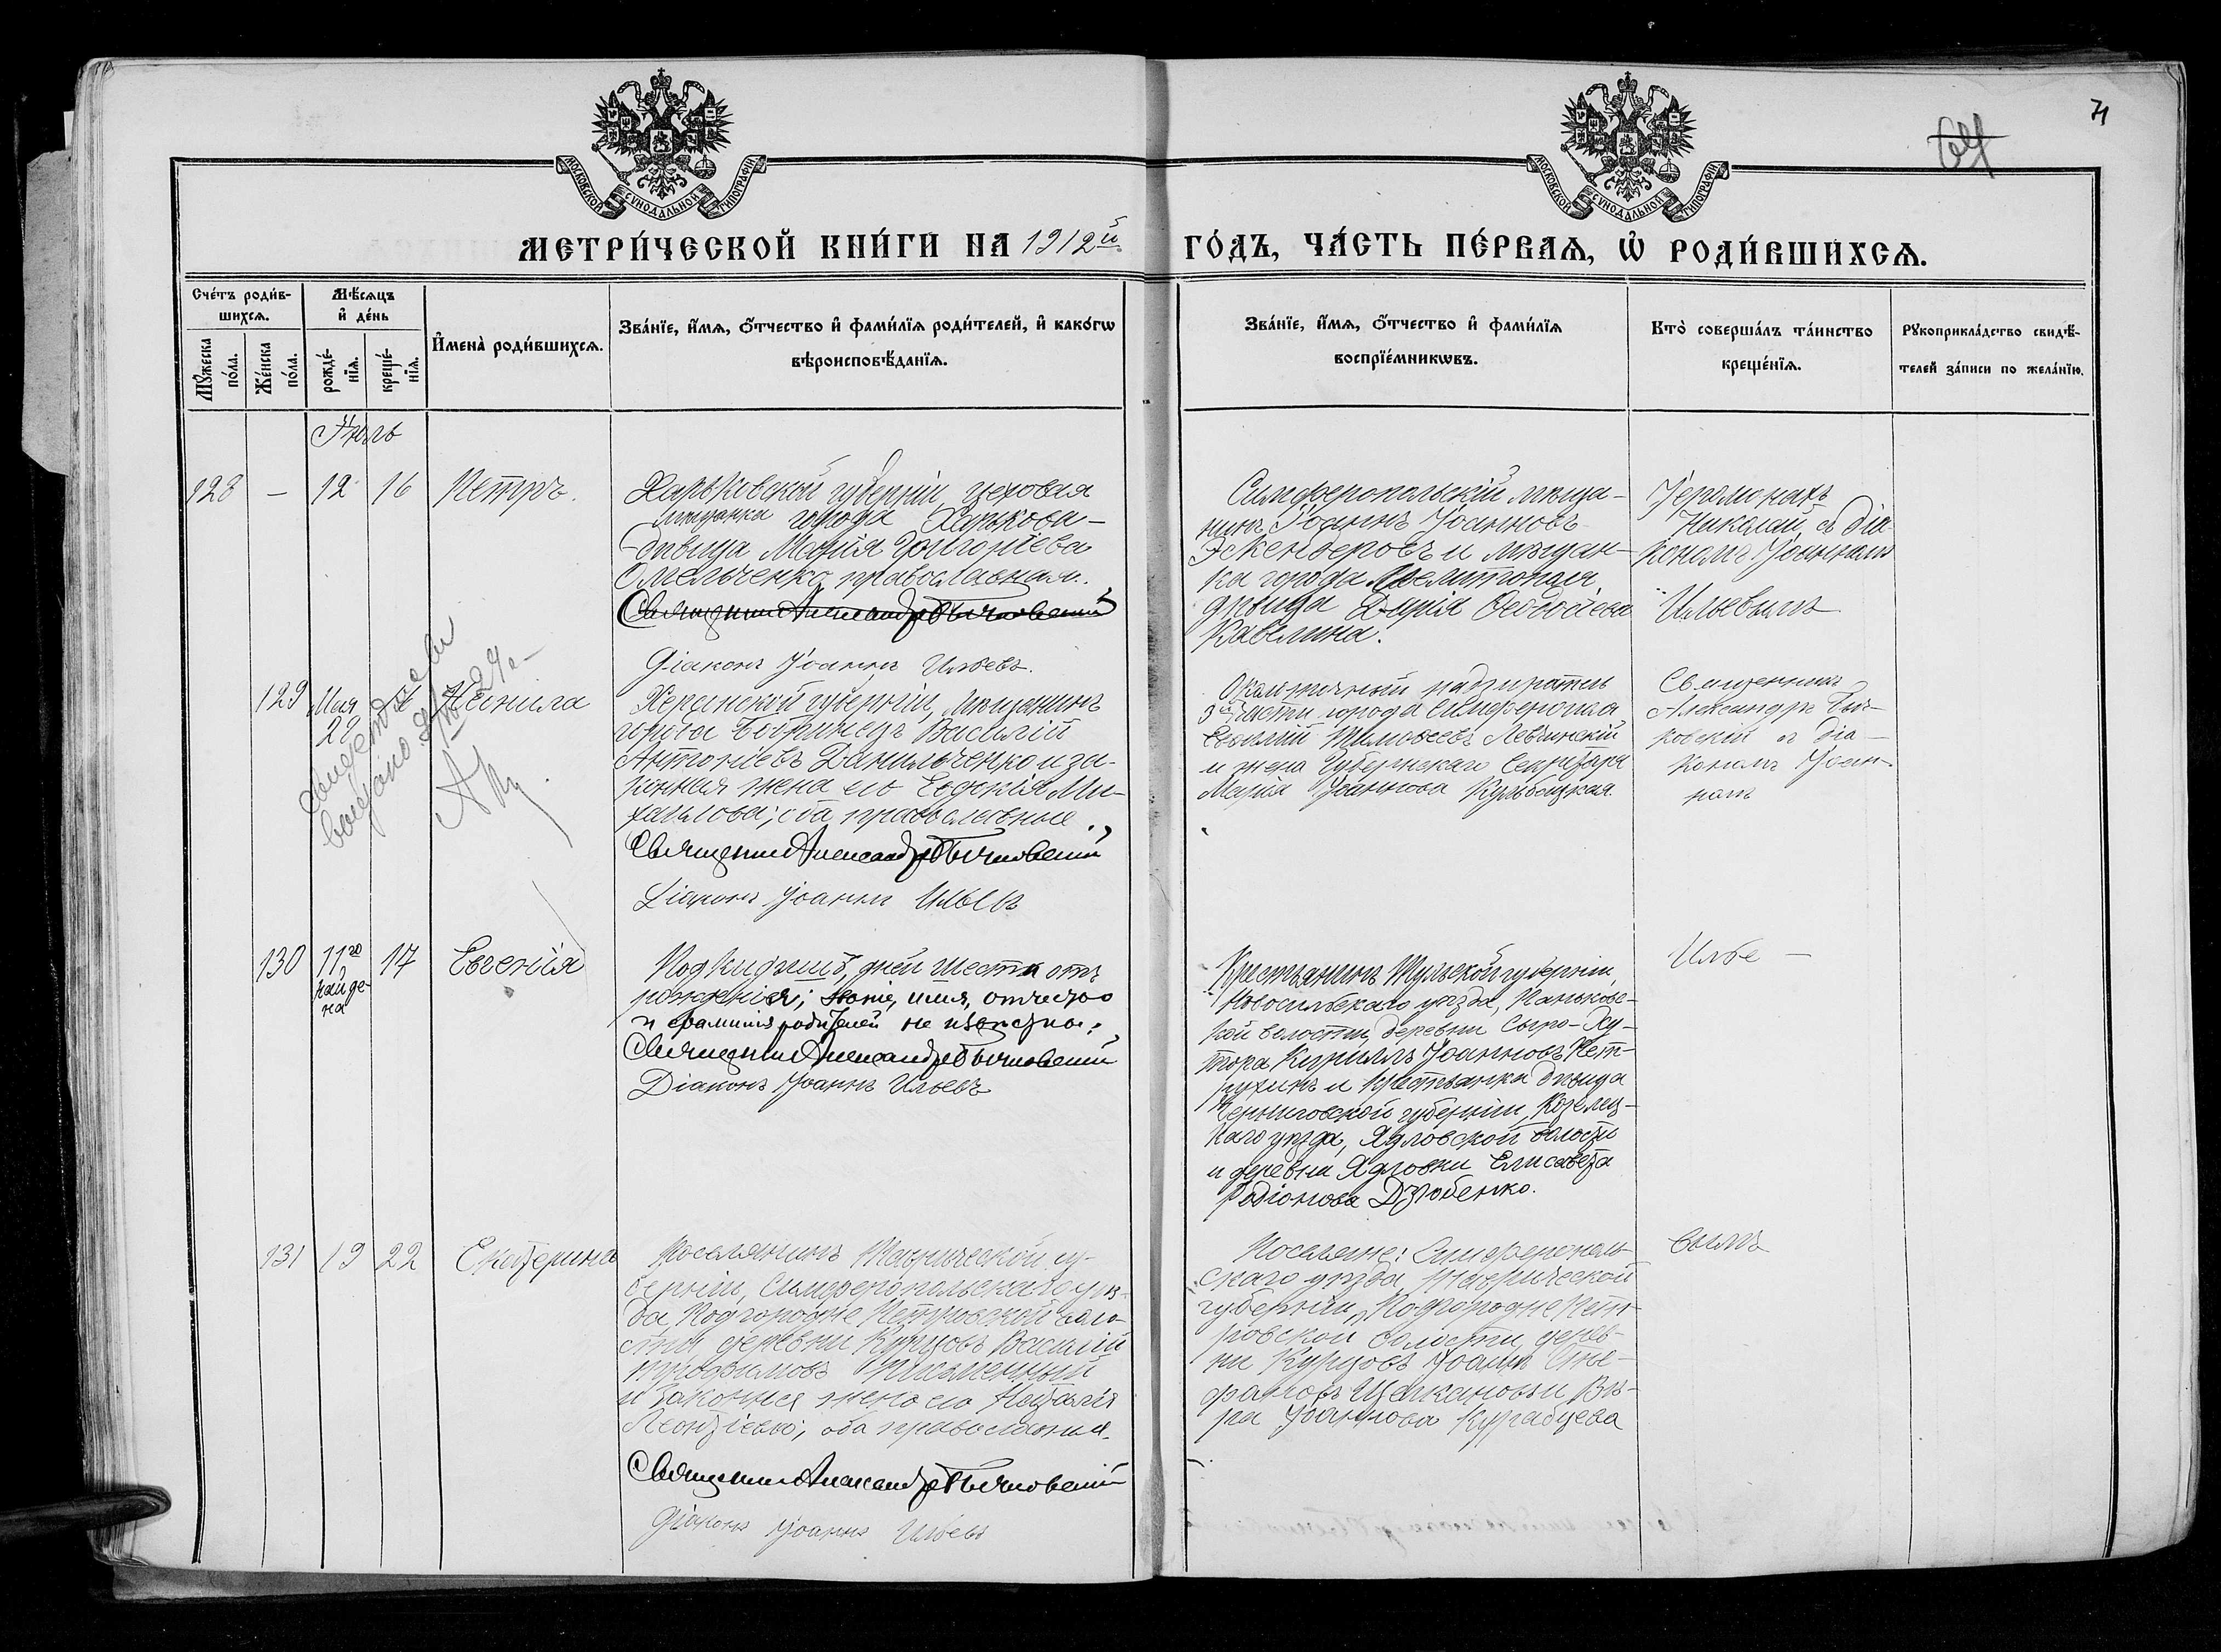 71
64
МОСКОВСКОЙ СѴНОДАЛЬНОЙ ТИПОГРАФІИ
МОСКОВСКОЙ СѴНОДАЛЬНОЙ ТИПОГРАФІИ
МЕТРИ́ЧЕСКОЙ КНИ́ГИ НА 1912й ГО́ДЪ, ЧА́СТЬ ПЕ́РВАѦ, Ѡ҆ РОДИ́ВШИХСѦ.
Сче́тъ роди́в-
шихсѧ.
Мꙋ́жеска по́ла.
Же́нска по́ла.
Мѣ́сѧцъ
и҆ де́нь
рожде́-
нїѧ.
креще́-
нїѧ.
И҆мена̀ роди́вшихсѧ.
Зва́нїе, и҆́мѧ, ѻ҆́тчество и҆ фами́лїѧ роди́телей, и҆ како́гѡ
вѣроисповѣ́данїѧ.
Зва́нїе, и҆́мѧ, ѻ҆́тчество и҆ фами́лїѧ
воспрїе́мникѡвъ.
Кто̀ соверша́лъ та́инство
креще́нїѧ.
Рꙋкоприкла́дство свидѣ́-
телей за́писи по жела́нїю.
Іюль
128 — 12 16 Петръ.
Харьковской губерніи цеховая
мѣщанка города Харькова —
дѣвица Марія Григоріева
Омельченко, православная.
Священникъ Александръ Бычковскій
Діаконъ Іоаннъ Ильевъ.
Симферопольскій мѣща-
нинъ Іоаннъ Іоанновъ
Эскендеровъ и мѣщан-
ка города Мелитополя
дѣвица Дарія Ѳеодосіева
Кавелина.
Іеромонахъ
Николай съ діа-
кономъ Іоанномъ
Ильевымъ
129 Мая 22 Неонила
Херсонской губерніи, мѣщанинъ
города Бобринецъ Василій
Антоніевъ Данильченко и за-
конная жена его Евдокія Ми-
хаилова; оба православные.
Священникъ Александръ Бычковскій
Діаконъ Іоаннъ Ильевъ
Околоточный надзиратель
3й части города Симферополя
Василій Тимоѳеевъ Левчинскій
и жена Губернскаго Секретаря
Марія Іоаннова Кульбацкая.
Священникъ
Александръ Быч-
ковскій съ діа-
кономъ Іоан-
номъ
130 11го найде-
на
17 Евгенія
Подкидышъ, дней шести отъ
рожденія; званіе, имя, отчество
и фамилія родителей не извѣстны.
Священникъ Александръ Бычковскій
Діаконъ Іоаннъ Ильевъ
Крестьянинъ Тульской губерніи,
Новосильскаго уѣзда, Паньков-
ской волости, деревни Сыро-Ху-
тора Кириллъ Іоанновъ Пет-
рухинъ и крестьянка дѣвица
Черниговской губерніи, Козелец-
каго уѣзда, Ядловской волости
и деревни Ядловки Елисавета
Родіонова Дзюбенко.
Илье —
131 19 22 Екатерина
Поселянинъ Таврической гу-
берніи, Симферопольскаго уѣз-
да, Подгородне Петровской воло-
сти деревни Курцовъ Василій
Трофимовъ Письменный
и законная жена его Наталія
Леонтіева; оба православные.
Священникъ Александръ Бычковскій
Діаконъ Іоаннъ Ильевъ
Поселяне: Симферополь-
скаго уѣзда Таврической
губерніи, Подгородне Пет-
ровской волости дерев-
ни Курцовъ Іоаннъ Сте-
фановъ Щелкановъ и Вѣ-
ра Іоаннова Курабцева
вымъ